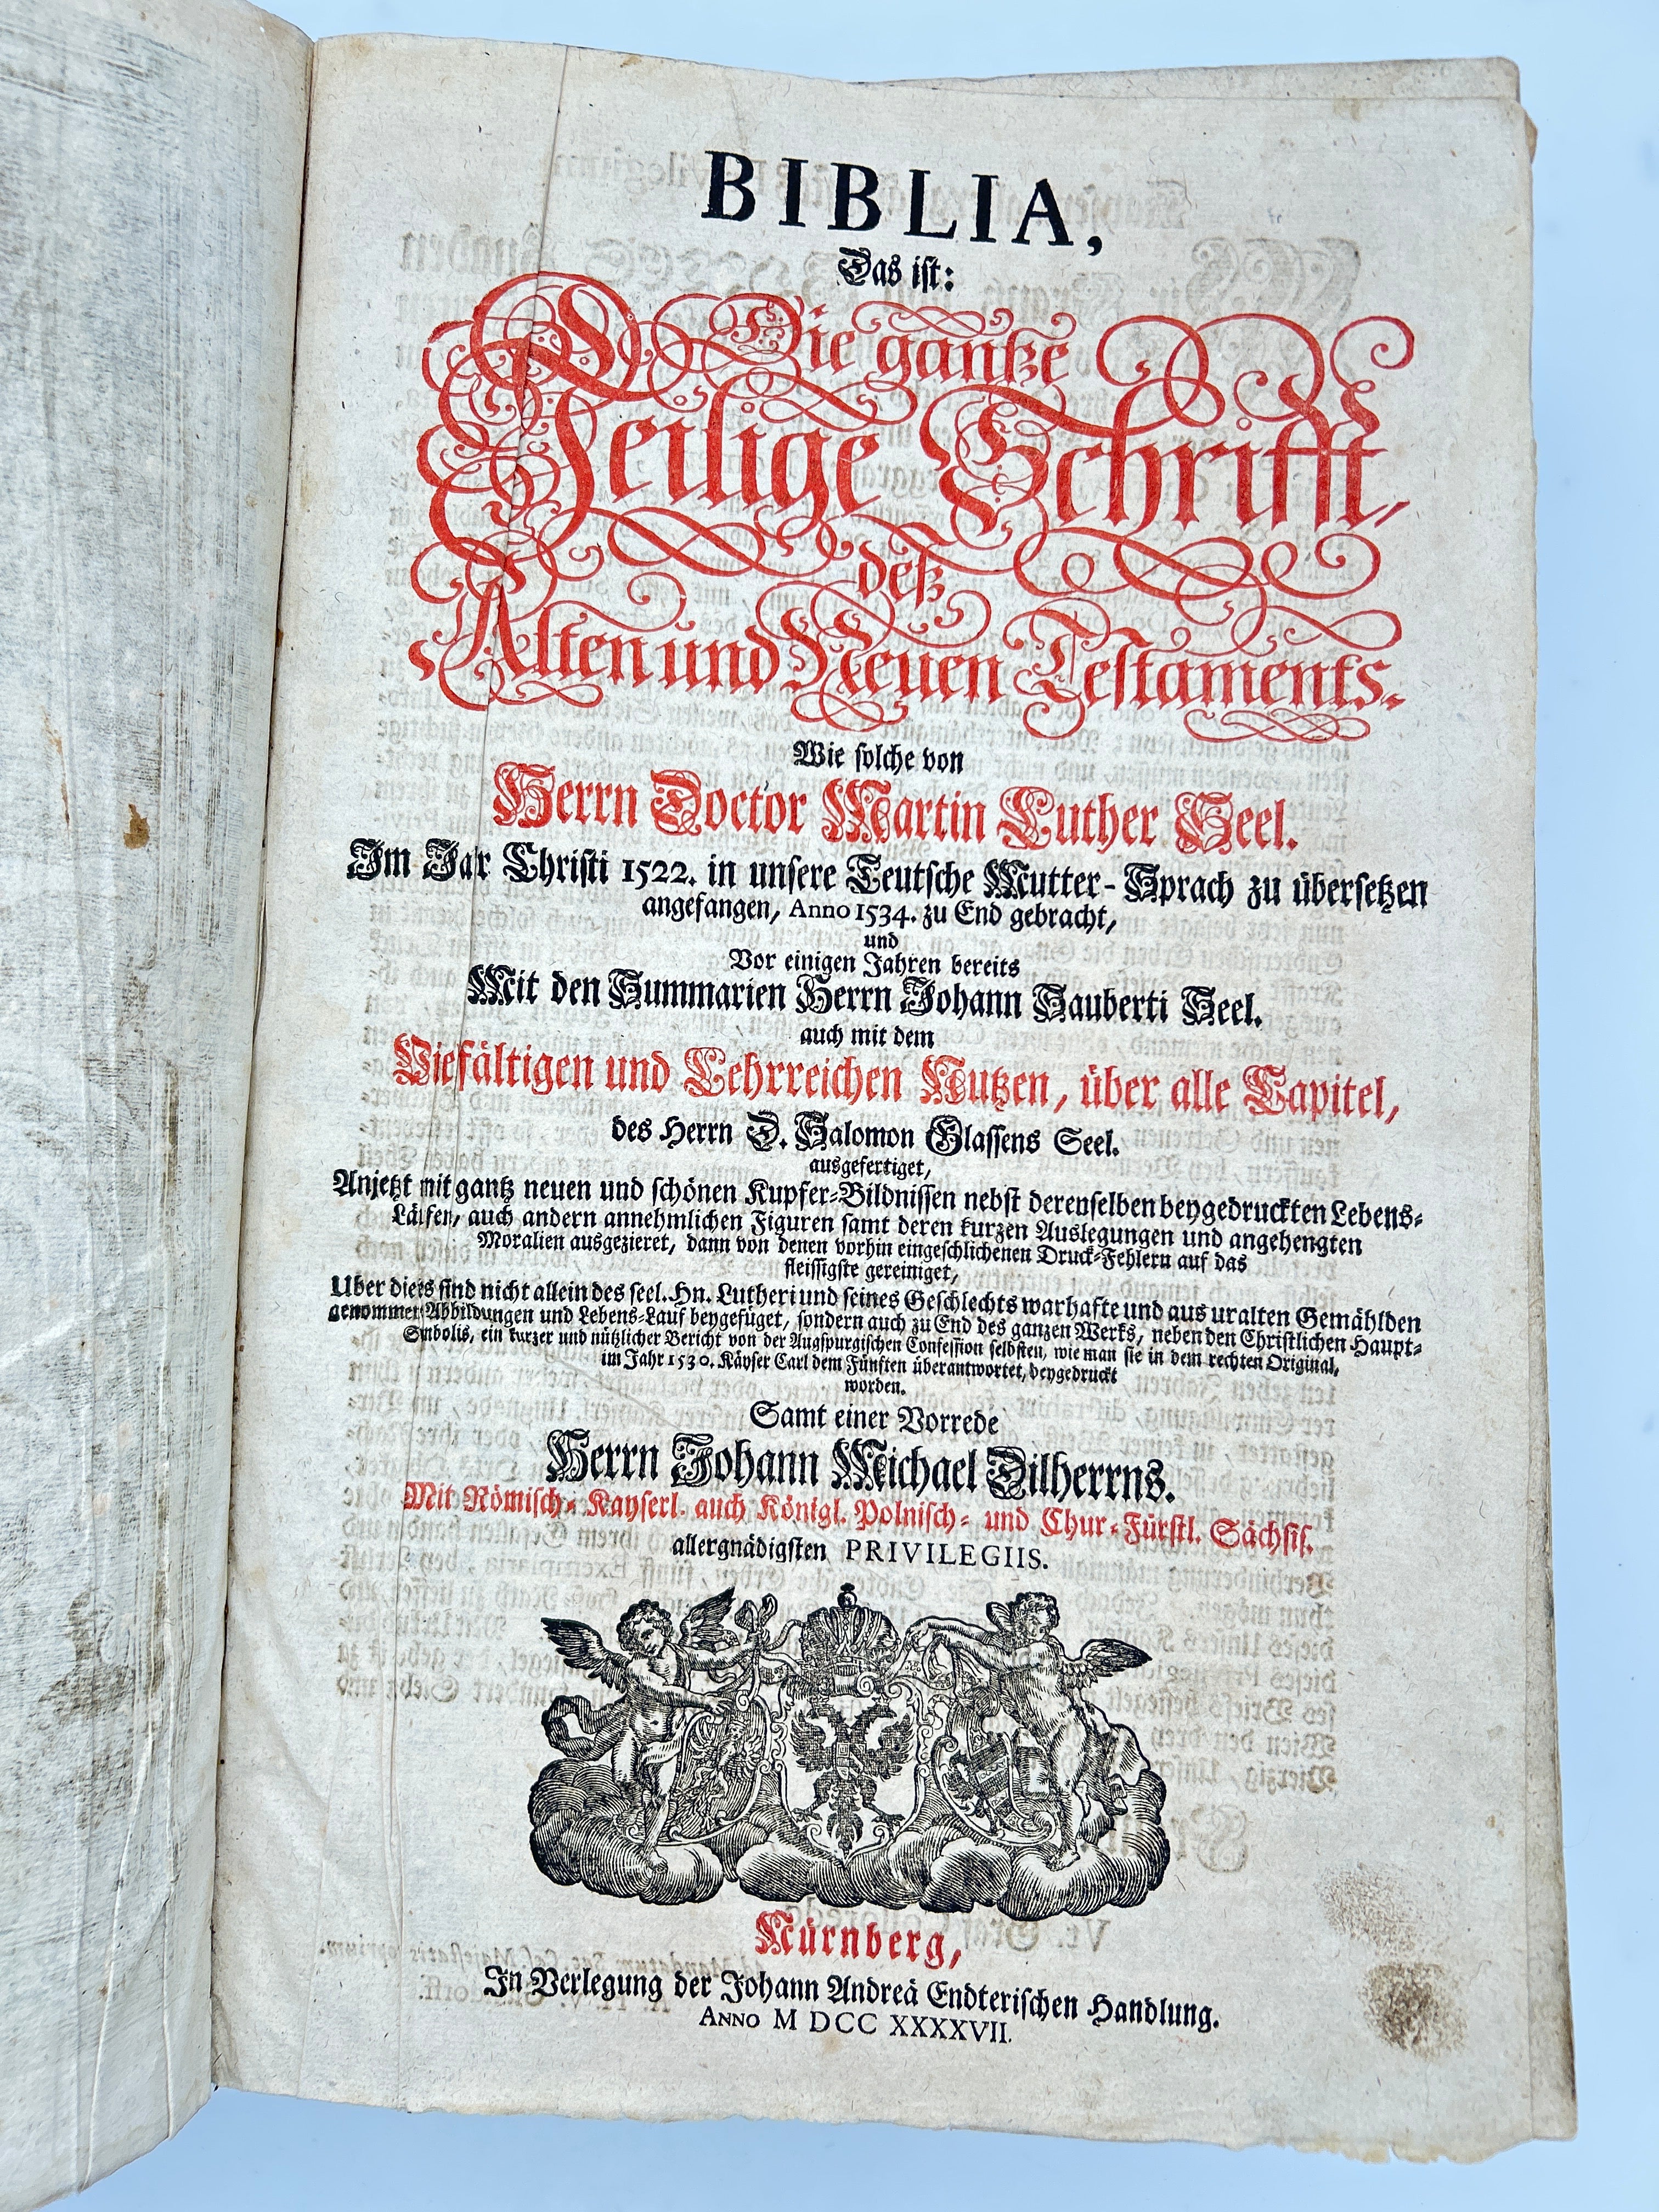 BIBLIA,
Das ist:
Die gantze
Heilige Schrifft,
deß
Alten und Neuen Testaments.
Wie solche von
Herrn Doctor Martin Luther Seel.
Im Jar Christi 1522. in unsere Teutsche Mutter-Sprach zu übersetzen
angefangen, Anno 1534. zu End gebracht,
und
Vor einigen Jahren bereits
Mit den Summarien Herrn Johann Sauberti Seel.
auch mit dem
Viefältigen und Lehrreichen Nutzen, über alle Capitel,
des Herrn D. Salomon Glassens Seel.
ausgefertiget,
Anjetzt mit gantz neuen und schönen Kupfer-Bildnissen nebst derenselben beygedruckten Lebens-
Läufen, auch andern annehmlichen Figuren samt deren kurzen Auslegungen und angehengten
Moralien ausgezieret, dann von denen vorhin eingeschlichenen Druck-Fehlern auf das
fleissigste gereiniget,
Uber dieses sind nicht allein des seel. Hn. Lutheri und seines Geschlechts warhafte und aus uralten Gemählden
genommene Abbildungen und Lebens-Lauf beygefüget, sondern auch zu End des ganzen Werks, neben den Christlichen Haupt-
Smbolis, ein kurzer und nützlicher Bericht von der Augspurgischen Confession selbsten, wie man sie in dem rechten Original,
im Jahr 1530. Käyser Carl dem Fünften überantwortet, beygedruckt
worden.
Samt einer Vorrede
Herrn Johann Michael Dilherrns.
Mit Römisch-Kayserl. auch Königl. Polnisch- und Chur-Fürstl. Sächsis.
allergnädigsten PRIVILEGIIS.
Nürnberg,
In Verlegung der Johann Andreä Endterischen Handlung.
ANNO M DCC XXXXVII.